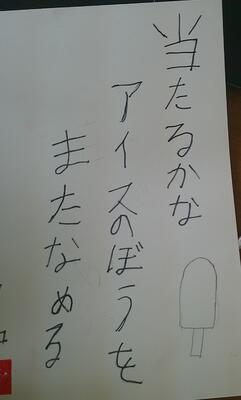 当たるかな
アイスのぼうを
またなめる